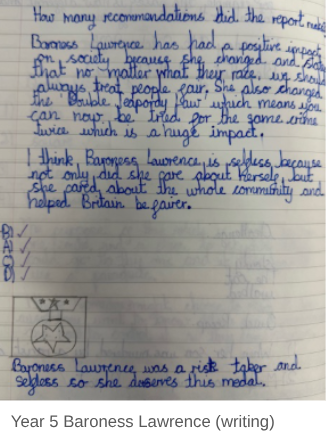 How many recommendations did the report make
Baroness Lawrence has had a positive impact
on society because she changed and
that no matter what their race, we should
always treat people fair. She also changed
the 'Double Jeopardy law' which means you
can now be tried for the same crime
twice which is a huge impact.
I think Baroness Lawrence is selfless because
not only did she care about herself, but
she cared about the whole community and
helped Britain be fairer.
B) ✓
A) ✓
C) ✓
D) ✓
Baroness Lawrence was a risk taker and
selfless so she deserves this medal.
Year 5 Baroness Lawrence (writing)